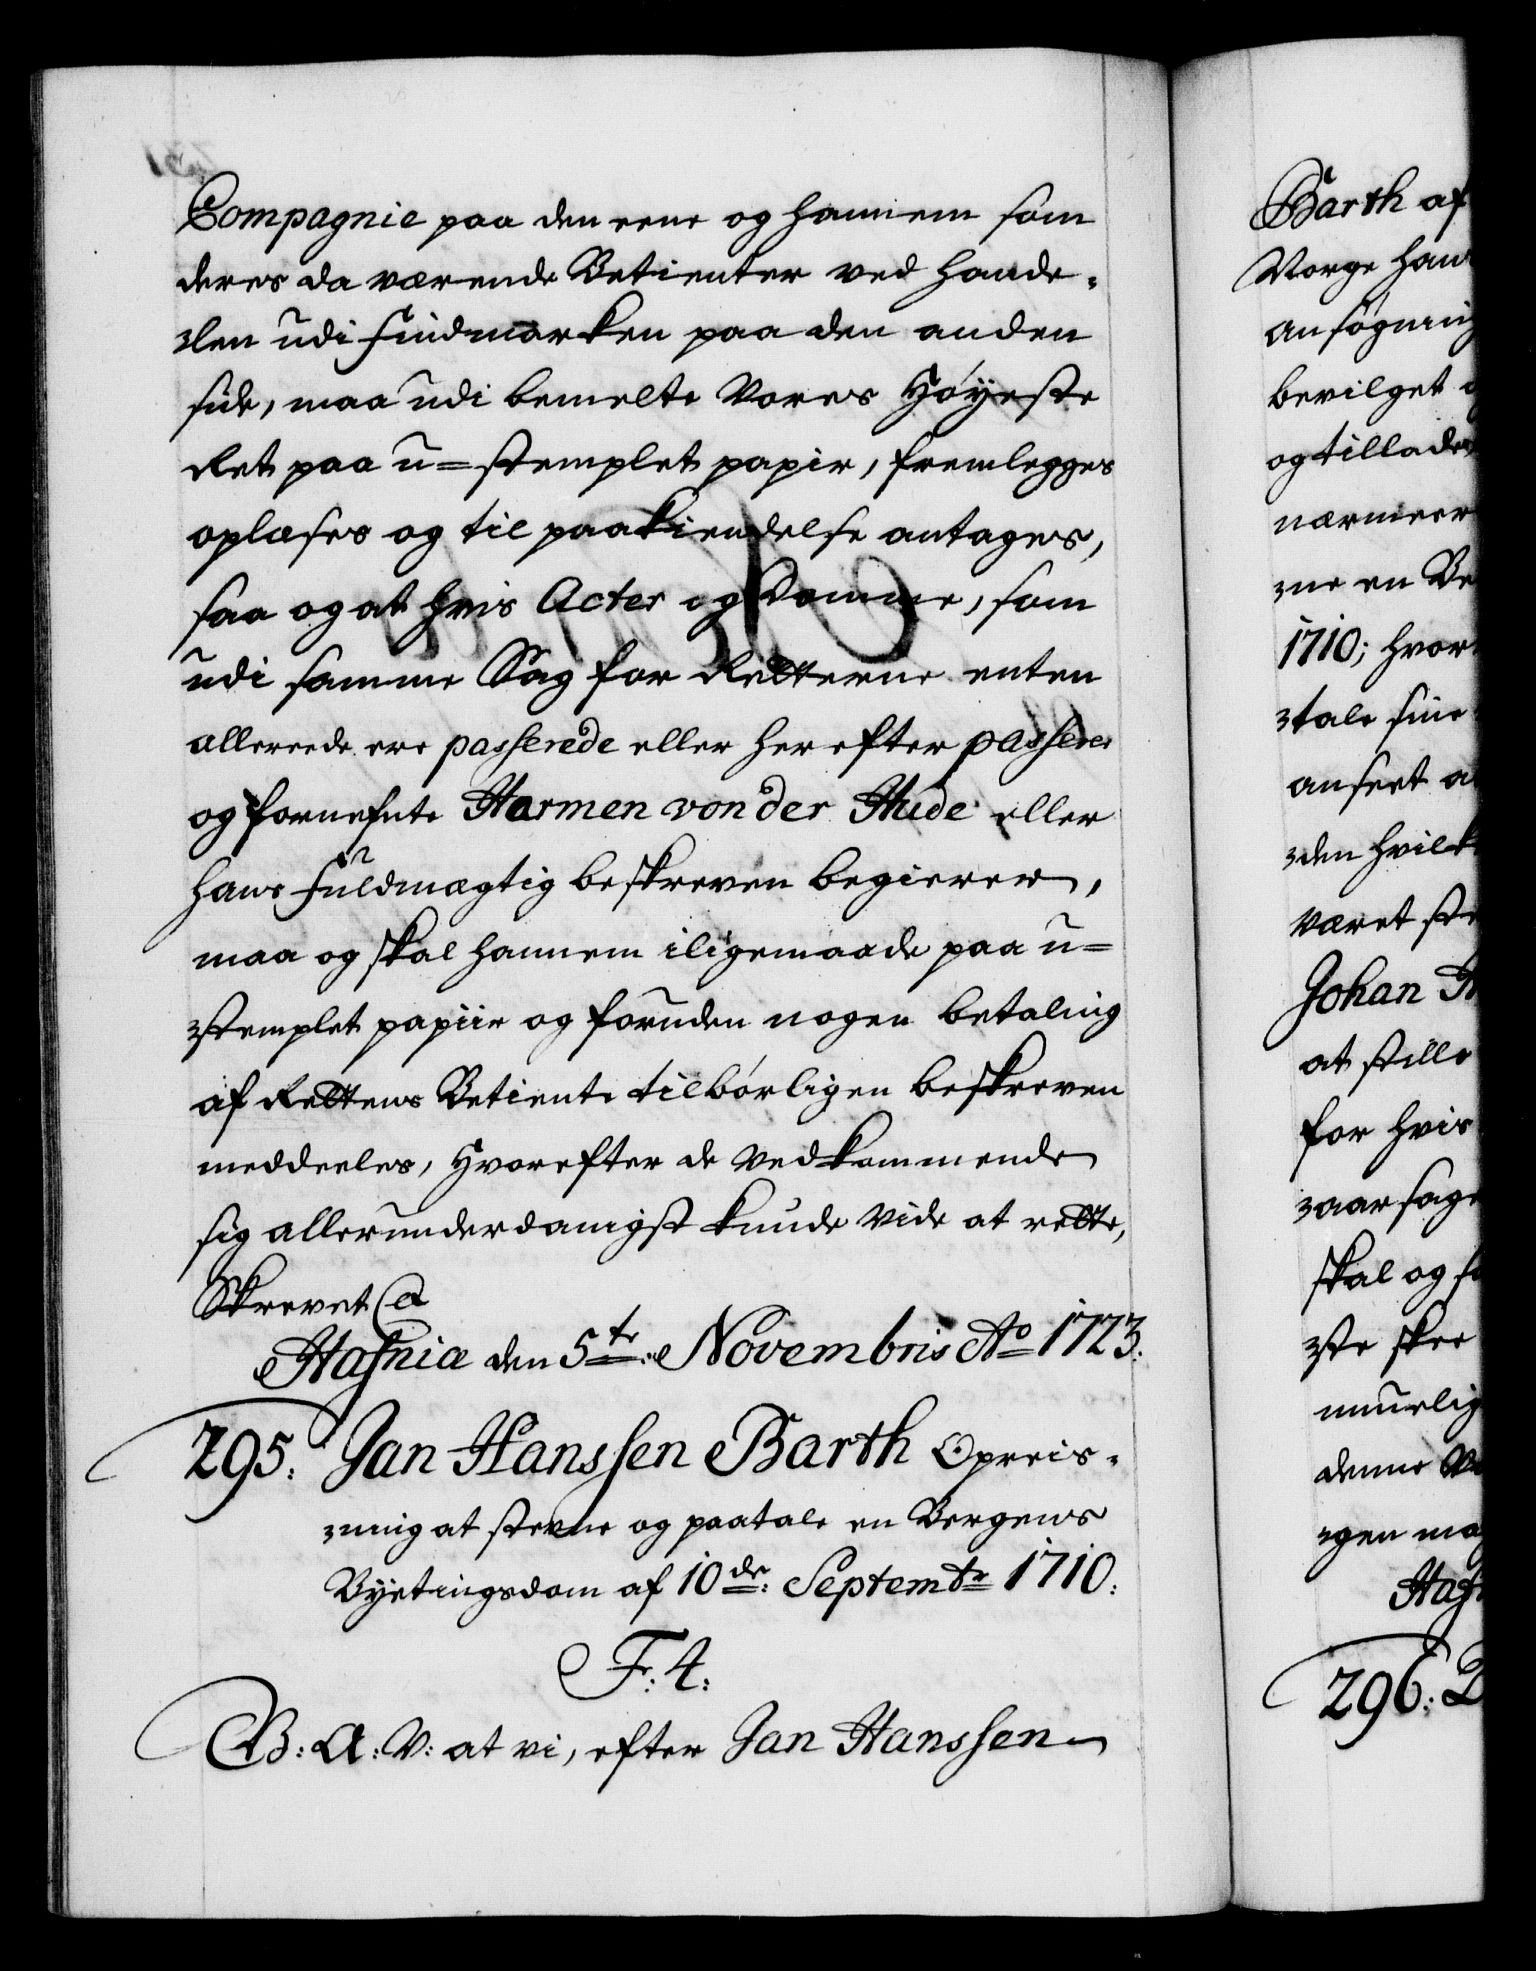 Compagnie paa den eene og hannem som
deres da værende Betienter ved Hande-
len udi Findmarken paa den anden
side, maa udi bemelte Vores Høyeste
Ret paa u=stemplet papir, fremlegges
oplæses og til paakiendelse antages,
saa og at hvis Acter og Domme, som
udi samme Sag for Retterne enten
allereede ere passerede eller her efter passerer
og fornefnte Harmen von der Hude eller
hans Fuldmægtig beskreven begierer,
maa og skal hannem iligemaade paa u=
stemplet papiir og foruden nogen betaling
af Rettens Betiente tilbørligen beskreven
meddeeles, Hvorefter de Vedkommende
sig allerunderdanigst kunde vide at rette,
Skrevet &
Hafniæ den 5te: Novembris Ao 1723.
295. Jan Hanssen Barth Opreis-
ning at stevne og paatale en Bergens
Byetingsdom af 10de: Septembr 1710.
F: 4:
B: A: V: at vi, efter Jan Hanssen
Barth af
Norge hans
ansøgning
bevilget
og tillades
nærmeer
ne en Be
1710; hvor
tale sine
anseet a
den hvilk
været ste
Johan
at stille
for hvis
aarsage
skal og
ste skee
muurlig
denne
gen maa
Hafn
296.